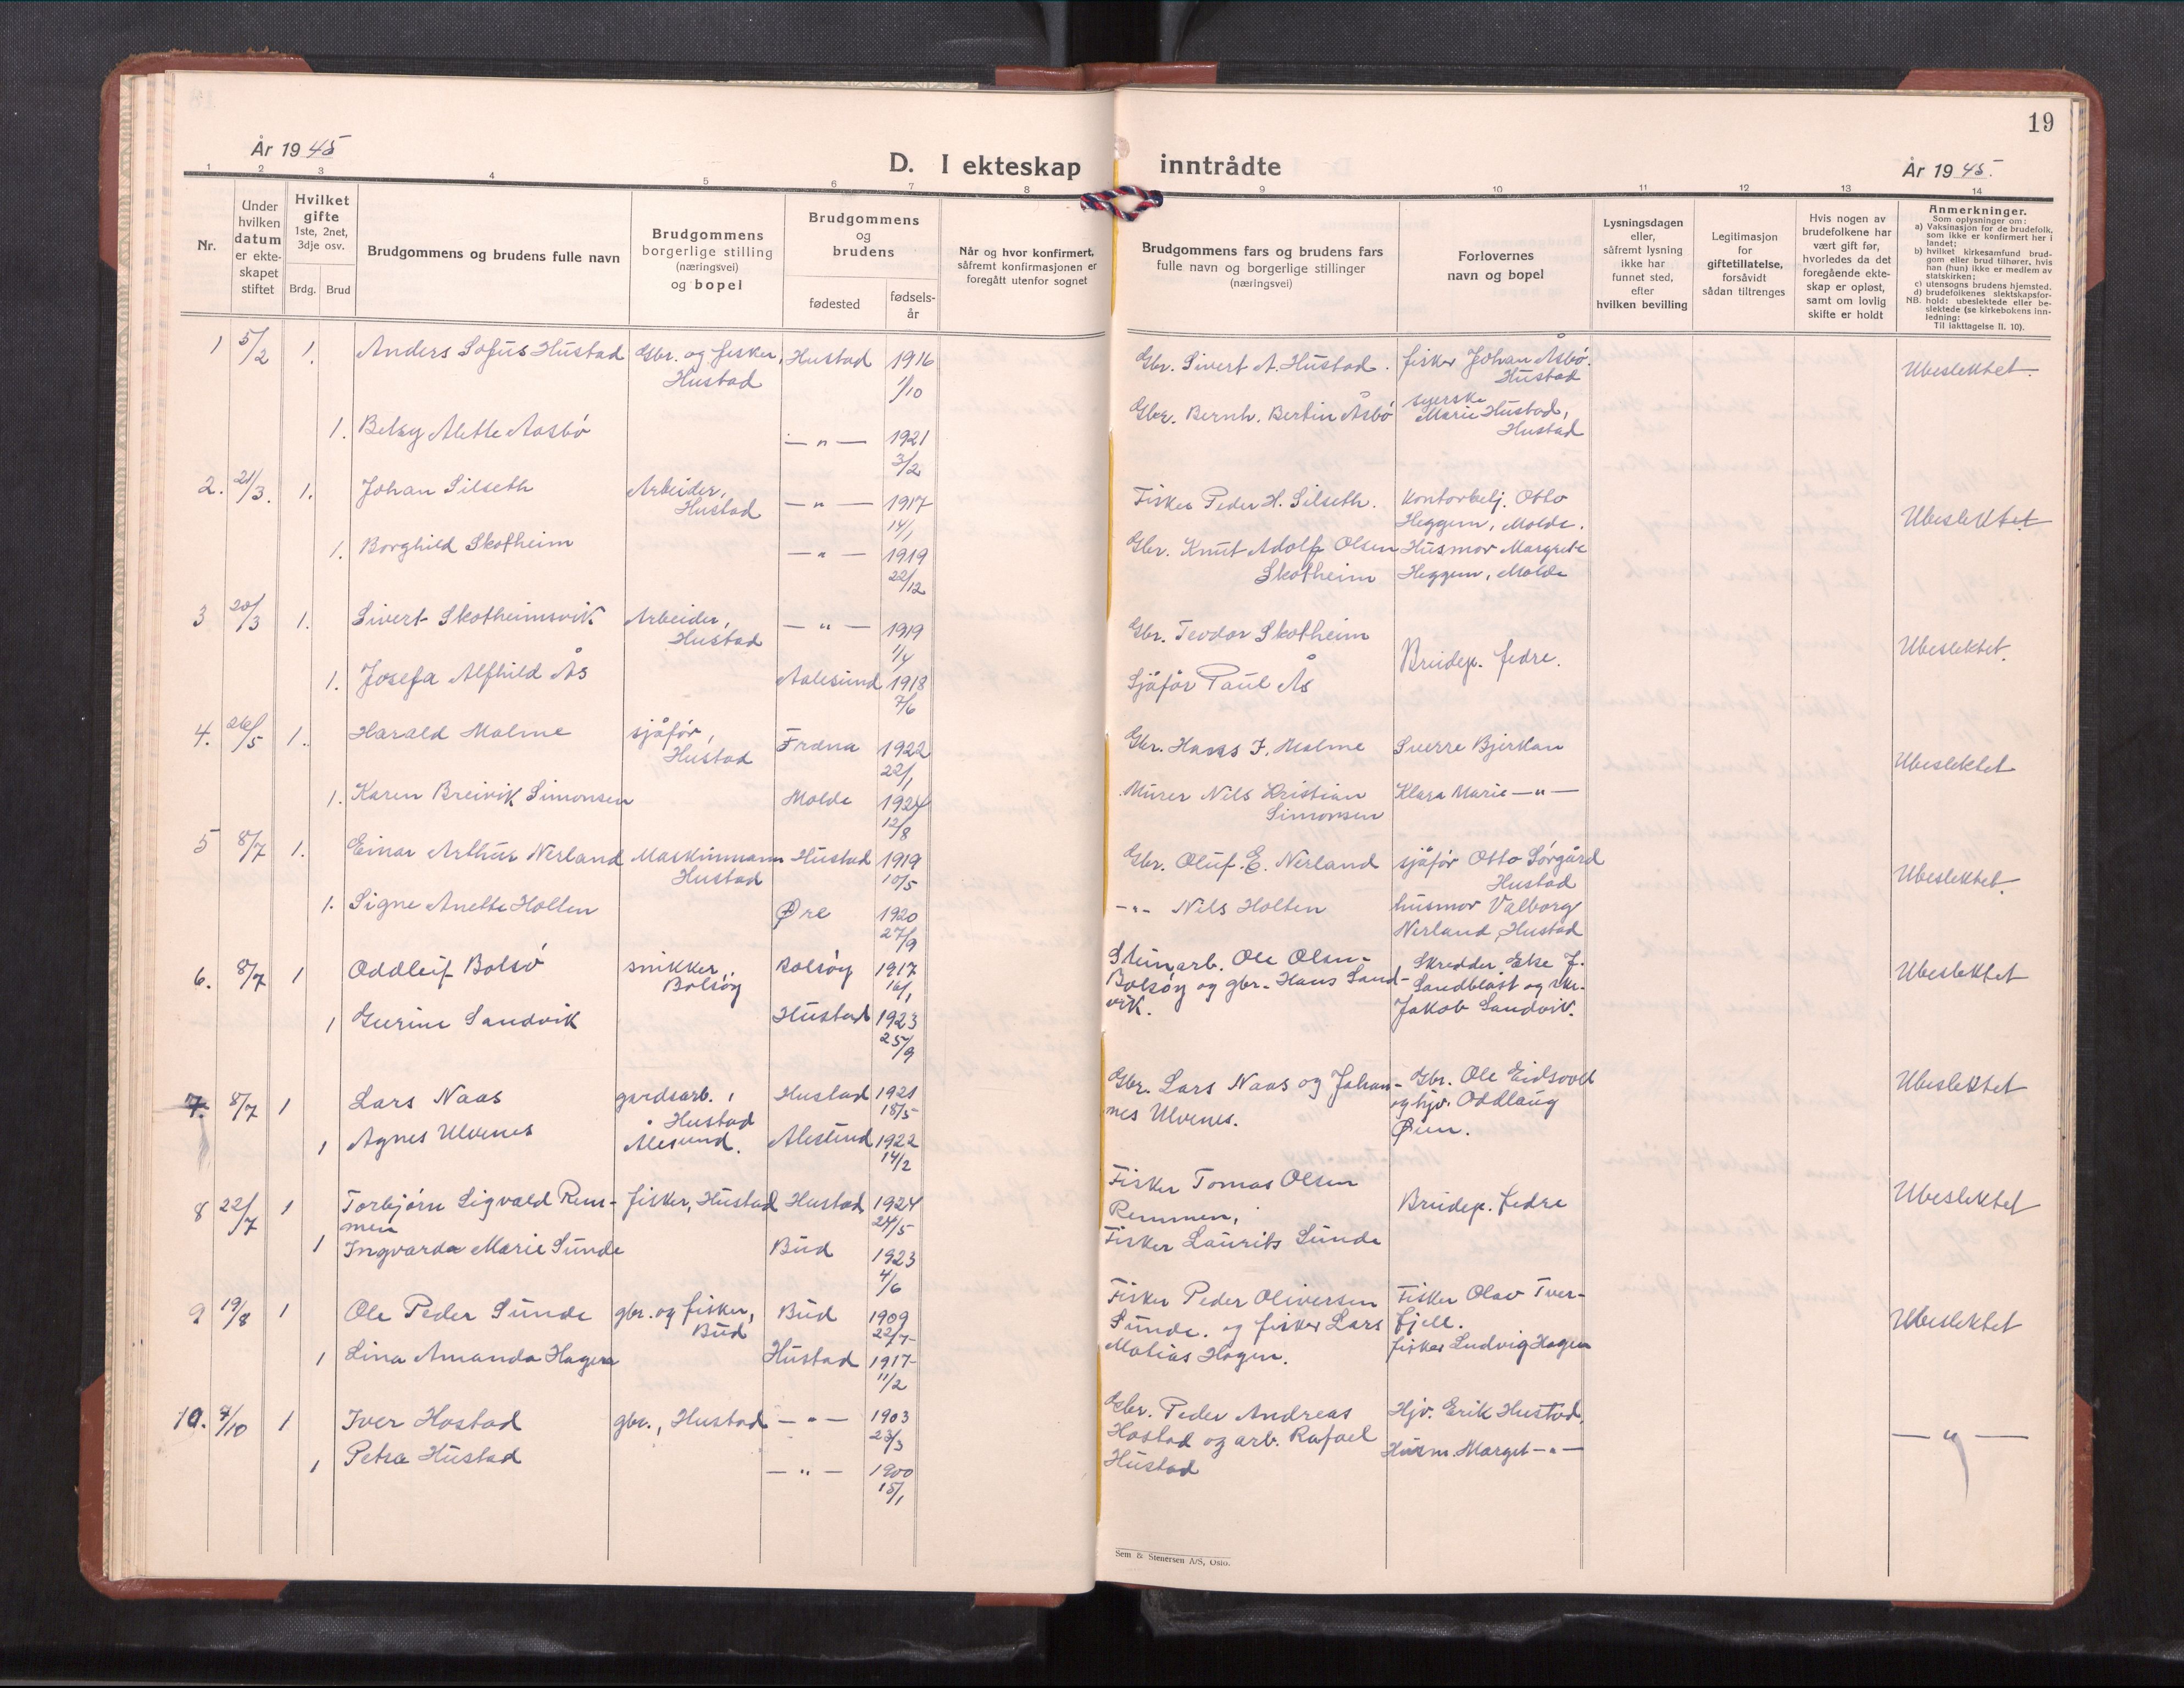 19
År 1945
D. I ekteskap inntrådte
År 1945.
1 2 3 4 5 6 7 8 9 10 11 12 13 14
Nr.
Under hvilken datum er ekteskapet stiftet
Hvilket gifte 1ste, 2net, 3dje osv.
Brdg. Brud
Brudgommens og brudens fulle navn
Brudgommens borgerlige stilling (næringsvei) og bopel
Brudgommens og brudens
fødested
fødsels-år
Når og hvor konfirmert, såfremt konfirmasjonen er foregått utenfor sognet
Brudgommens fars og brudens fars fulle navn og borgerlige stillinger (næringsvei)
Forlovernes navn og bopel
Lysningsdagen eller, såfremt lysning ikke har funnet sted, efter hvilken bevilling
Legitimasjon for giftetillatelse, forsåvidt sådan tiltrenges
Hvis nogen av brudefolkene har vært gift før, hvorledes da det foregående ekteskap er opløst, samt om lovlig skifte er holdt
Anmerkninger.
Som oplysninger om:
a) Vaksinasjon for de brudefolk, som ikke er konfirmert her i landet;
b) hvilket kirkesamfund brudgom eller brud tilhører, hvis han (hun) ikke er medlem av statskirken;
c) utensogns brudens hjemsted.
d) brudefolkenes slektskapsforhold: ubeslektede eller beslektede (se kirkebokens innledning:
NB. Til iakttagelse II. 10).
1 5/2 1. Anders Sofus Hustad Gbr. og fisker, Hustad Hustad 1916 1/10 Gbr. Sivert A. Hustad. fisker Johan Åsbö. Hustad Ubeslektet.
1. Betzy Alette Aasbö —"— 1921 3/2 Gbr. Bernh. Bertin Åsbö syerske Marie Hustad, Hustad
2. 21/3. 1. Johan Silseth Arbeider, Hustad —"— 1917 14/1 Fisker Peder H. Silseth. Kontorbetj. Otto Heggem, Molde. Ubeslektet
1. Borghild Skotheim —"— 1919 22/12 Gbr. Knut Adolf Olsen Skotheim Husmor Margrete Heggem, Molde
3 20/3 1. Sivert Skotheimsvik Arbeider, Hustad —"— 1919 1/4 Gbr. Teodor Skotheim Brudep. fedre. Ubeslektet.
1. Josefa Alfhild Ås Aalesund 1918 7/6 Sjåför Paul Ås
4. 26/5 1. Harald Malme sjåför, Hustad Fræna 1922 22/1 Gbr. Hans J. Malme Sverre Bjerkan Ubeslektet
1. Karen Breivik Simonsen Molde 1924 12/8 Murer Nils Kristian Simonsen Klara Marie —"—
5 8/7 1. Einar Arthur Nerland Maskinmann Hustad Hustad 1919 10/5 Gbr. Oluf E. Nerland sjåför Otto Sörgård Hustad Ubeslektet.
1. Signe Anette Holten Øre 1920 27/9 -"- Nils Holten husmor Valborg Nerland, Hustad
6. 8/7 1 Oddleif Bolsö snikker, Bolsöy Bolsöy 1917 16/1 Steinarb. Ole Olsen Bolsöy og gbr. Hans Sandvik. Skredder Else J. Sandblåst og Jakob Sandvik. Ubeslektet
1 Gurine Sandvik Hustad 1923 25/9
7. 8/7 1 Lars Naas gardsarb., Hustad Hustad 1921 18/5 Gbr. Lars Naas og Johannes Ulvenes. Gbr. Ole Eidsvold og hjv. Oddlaug Øien. Ubeslektet
1 Agnes Ulvenes Ålesund. Ålesund 1922 14/2
8 22/7 1 Torbjörn Sigvald Remmen fisker, Hustad Hustad 1924 24/5 Fisker Tomas Olsen Remmen, Brudep. fedre Ubeslektet
1 Ingvarda Marie Sunde Bud 1923 4/6 Fisker Laurits Sunde
9 19/8 1 Ole Peder Sunde gbr. og fisker, Bud Bud 1909 22/7 Fisker Peder Oliversen Sunde. og fisker Lars Matias Hagen. Fisker Olav Tverfjell. fisker Ludvig Hagen Ubeslektet
1 Lina Amanda Hagen Hustad 1917 11/2
10. 4/10 1 Iver Hostad gbr., Hustad —"— 1903 23/3 Gbr. Peder Andreas Hostad og arb. Rafael Hustad Hjv. Erik Hustad, Husm. Marget —"— —"—
1 Petra Hustad —"— 1900 15/1
Sem & Stenersen A/S, Oslo.